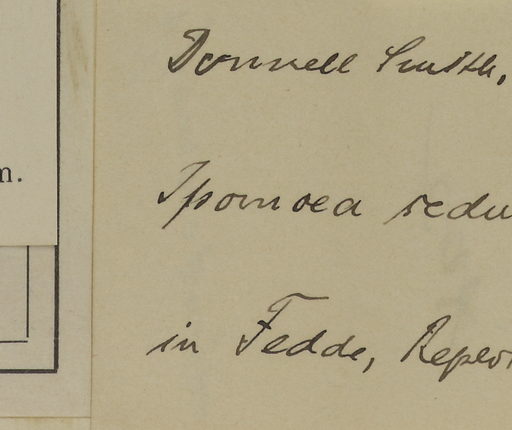 Donnell Smith,
m.
Ipomoea redu
in Fedde, Reper